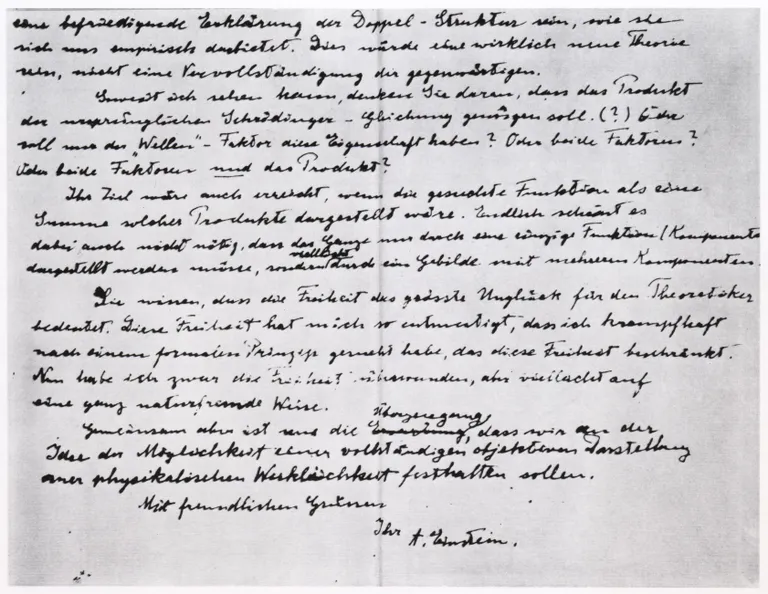 eine befriedigende Erklärung der Doppel-Struktur sein, wie sie
sich uns empirisch darbietet. Dies würde eine wirklich neue Theorie
sein, nicht eine Vervollständigung der gegenwärtigen.
Soweit ich sehen kann, denken Sie daran, dass das Produkt
der ursprünglichen Schrödinger-Gleichung genügen soll. (?) Oder
soll nur der "Wellen"-Faktor diese Eigenschaft haben? Oder beide Faktoren?
Oder beide Faktoren und das Produkt?
Ihr Ziel wäre auch erreicht, wenn die gesuchte Funktion als eine
Summe solcher Produkte dargestellt wäre. Endlich scheint es
dabei auch nicht nötig, dass das Ganze nur durch eine einzige Funktion (Komponente
dargestellt werden müsse, sondern vielleicht durch ein Gebilde mit mehreren Komponenten.
Sie wissen, dass die Freiheit das grösste Unglück für den Theoretiker
bedeutet. Diese Freiheit hat mich so entmutigt, dass ich krampfhaft
nach einem formalen Prinzip gesucht habe, das diese Freiheit beschränkt.
Nun habe ich zwar die Freiheit überwunden, aber vielleicht auf
eine ganz naturfremde Weise.
Gemeinsam aber ist uns die Überzeugung, dass wir an der
Idee der Möglichkeit einer vollständigen objektiven Darstellung
einer physikalischen Wirklichkeit festhalten sollen.
Mit freundlichen Grüssen
Ihr
A. Einstein.